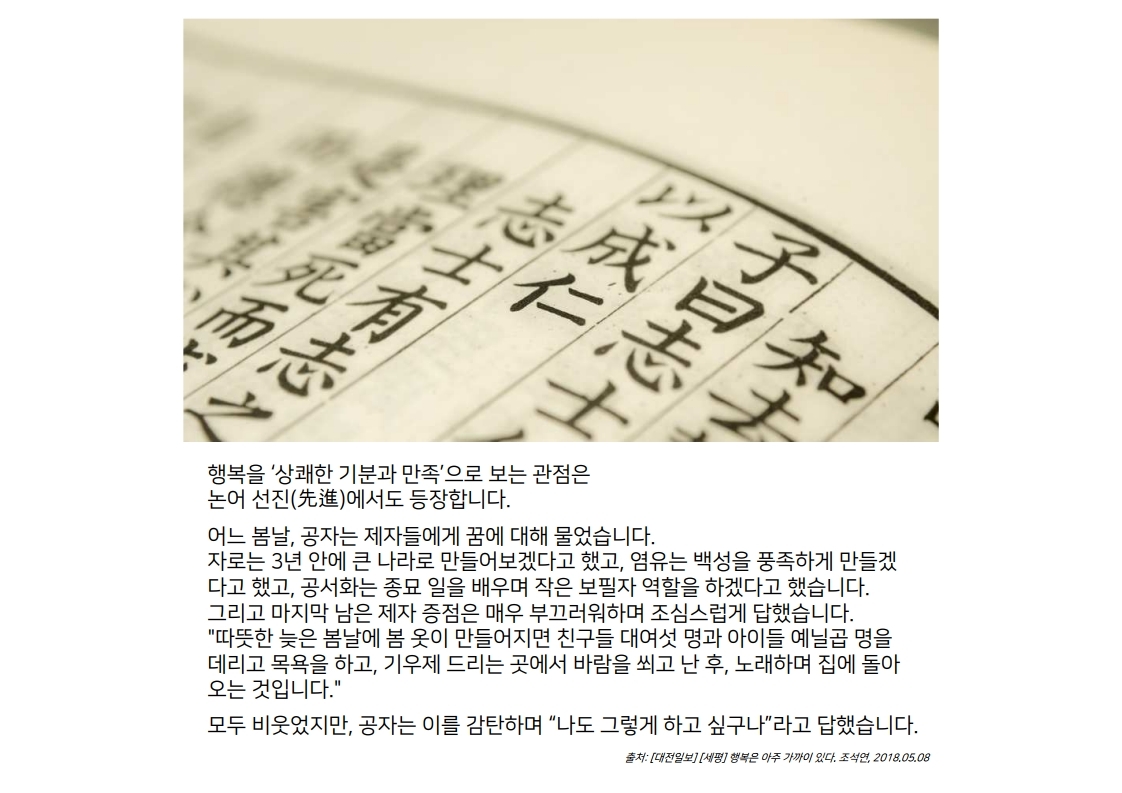 知
子曰志士
以成仁
志士有志
理當死而
行복을 ‘상쾌한 기분과 만족’으로 보는 관점은
논어 선진(先進)에서도 등장합니다.
어느 봄날, 공자는 제자들에게 꿈에 대해 물었습니다.
자로는 3년 안에 큰 나라로 만들어보겠다고 했고, 염유는 백성을 풍족하게 만들겠
다고 했고, 공서화는 종묘 일을 배우며 작은 보필자 역할을 하겠다고 했습니다.
그리고 마지막 남은 제자 증점은 매우 부끄러워하며 조심스럽게 답했습니다.
"따뜻한 늦은 봄날에 봄 옷이 만들어지면 친구들 대여섯 명과 아이들 예닐곱 명을
데리고 목욕을 하고, 기우제 드리는 곳에서 바람을 쐬고 난 후, 노래하며 집에 돌아
오는 것입니다."
모두 비웃었지만, 공자는 이를 감탄하며 “나도 그렇게 하고 싶구나”라고 답했습니다.
출처: [대전일보] [세평] 행복은 아주 가까이 있다. 조석연, 2018.05.08